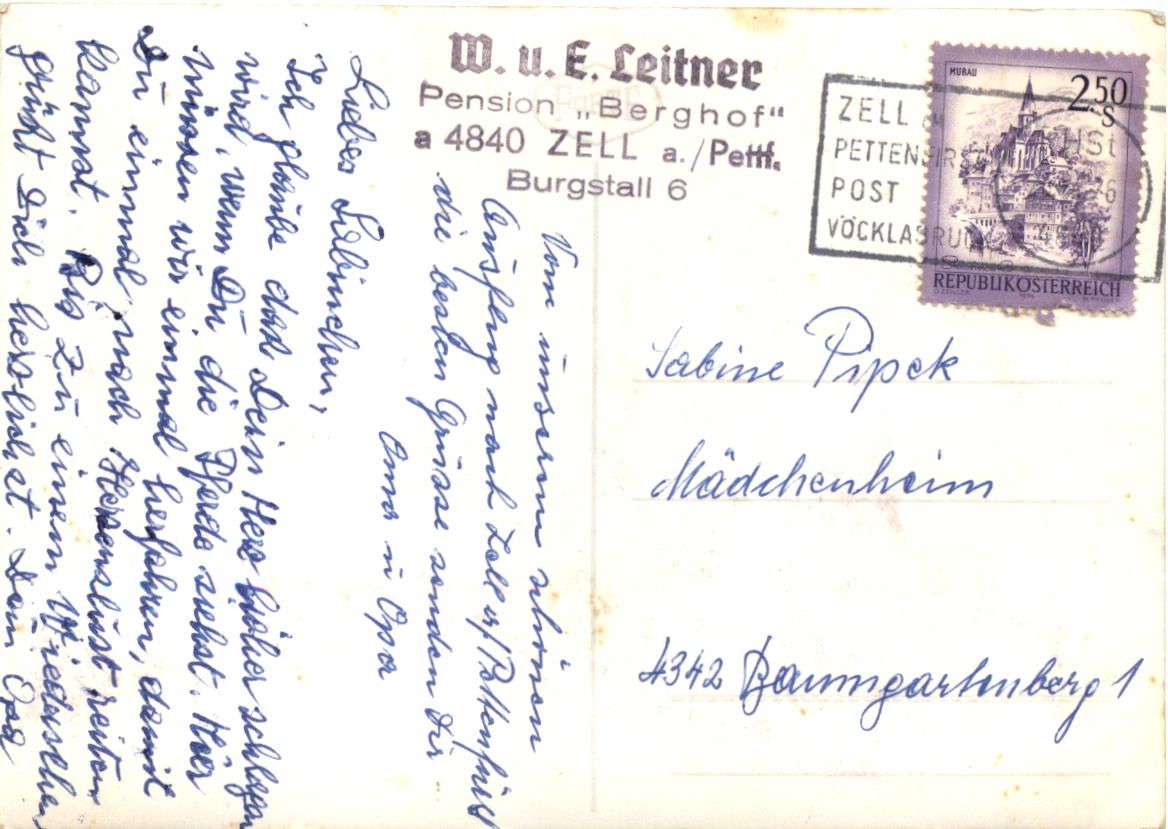 W. u. E. Leitner
Pension „Berghof"
a 4840 ZELL a./Pettf.
Burgstall 6
MURAU
2.50
S
REPUBLIK ÖSTERREICH
ZELL
PETTENFIRST
POST
VÖCKLABRUCK
4842
Sabine Pipek
Mädchenheim
4342 Baumgartenberg 1
Vom unserem schönen
Ausflug nach Zell a/Pettenfirst
die besten Grüsse senden Dir
Oma u Opa
Liebes Sabinchen,
Ich glaube das Dein Herz höher schlagen
wird, wenn Du die Pferde siehst. Hier
müssen wir einmal herfahren, damit
Du einmal nach Herzenslust reiten
kannst. Bis zu einem Wiedersehen
grüßt Dich herzlichst. Dein Opa